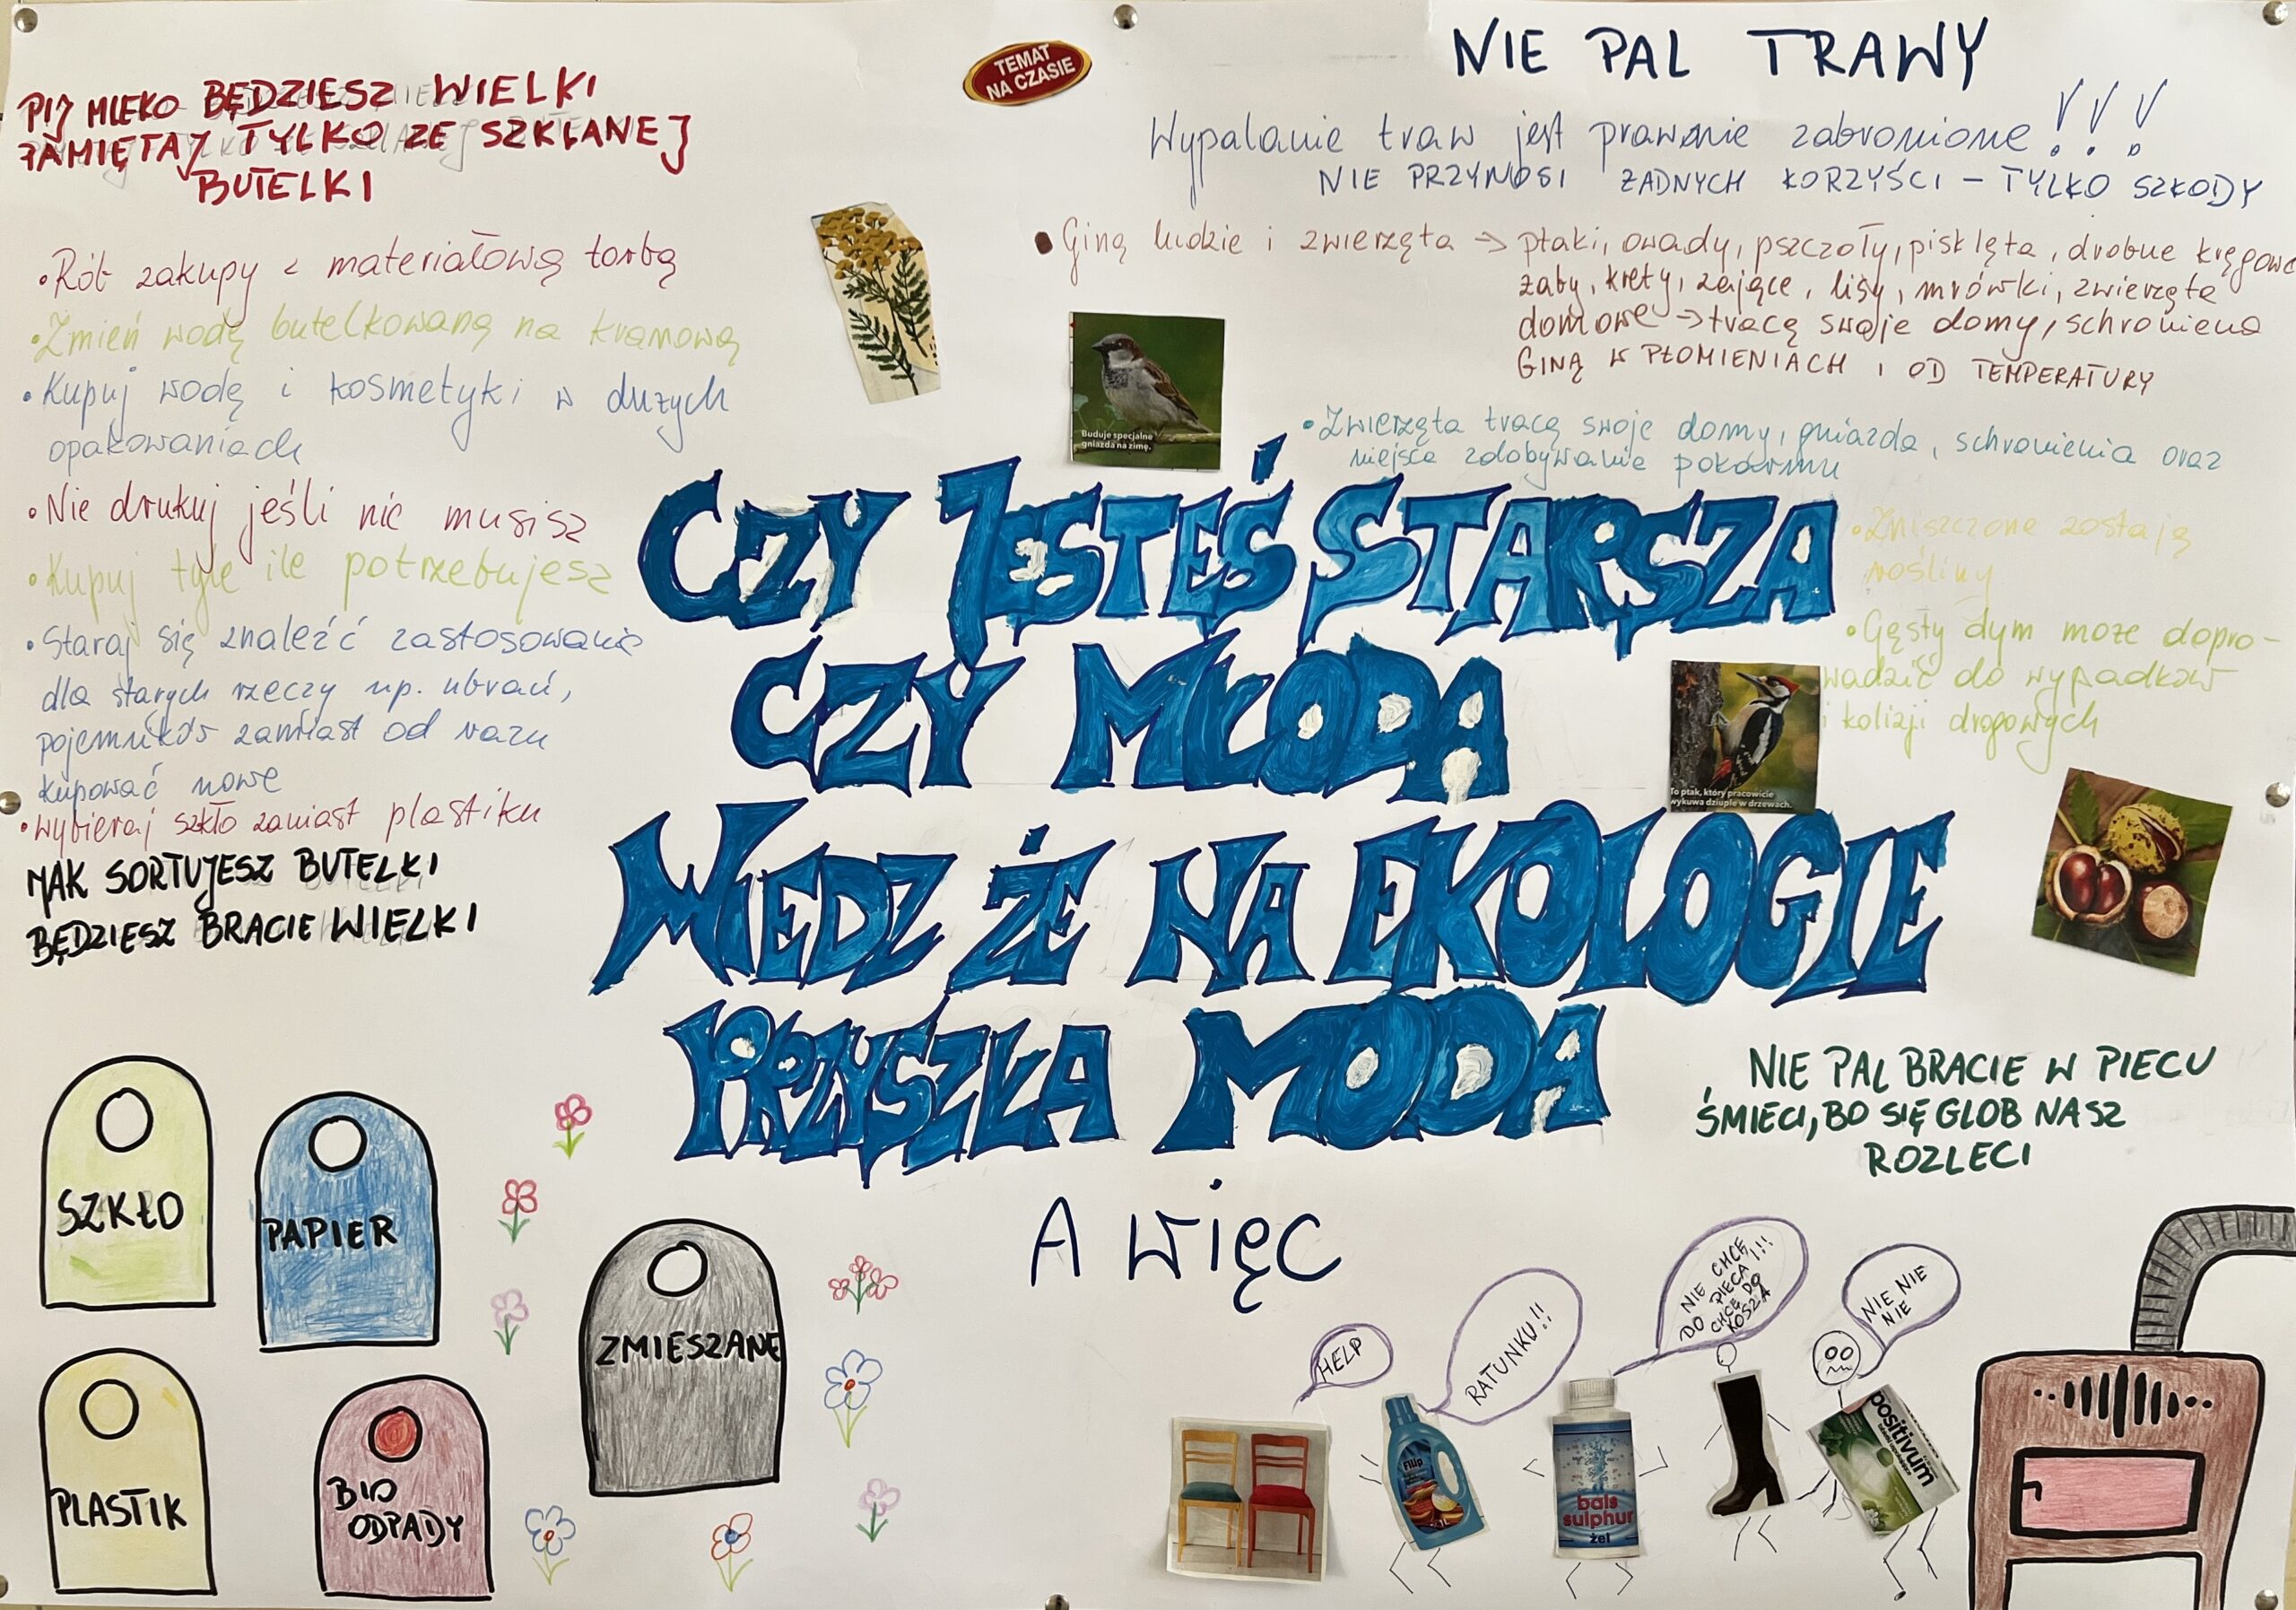 PIJ MLEKO BĘDZIESZ WIELKI
PAMIĘTAJ TYLKO ZE SZKLANEJ
BUTELKI
• Rób zakupy z materiałową torbą
• Zmień wodę butelkowaną na kranową
• Kupuj wodę i kosmetyki w dużych
opakowaniach
• Nie drukuj jeśli nie musisz
• Kupuj tyle ile potrzebujesz
• Staraj się znaleźć zastosowanie
dla starych rzeczy np. ubrań,
pojemników zamiast od razu
kupować nowe
• wybieraj szkło zamiast plastiku
JAK SORTUJESZ BUTELKI
BĘDZIESZ BRACIE WIELKI
TEMAT
NA CZASIE
NIE PAL TRAWY
Wypalanie traw jest prawnie zabronione!!!
NIE PRZYNOSI ŻADNYCH KORZYŚCI – TYLKO SZKODY
• Giną ludzie i zwierzęta → ptaki, owady, pszczoły, pisklęta, drobne
żaby, krety, zające, lisy, mrówki, zwierzęta
domowe → tracą swoje domy, schronienia
GINĄ W PŁOMIENIACH I OD TEMPERATURY
• Zwierzęta tracą swoje domy, gniazda, schronienia oraz
miejsca zdobywanie pokarmu
• Zniszczone zostają
rośliny
• Gęsty dym może dopro-
wadzić do wypadków
i kolizji drogowych
Buduje specjalne
gniazda na zimę.
CZY JESTEŚ STARSZA
CZY MŁODA
WIEDZ ŻE NA EKOLOGIE
PRZYSZŁA MODA
To ptak, który pracowicie
wykuwa dziuple w drzewach.
A więc
NIE PAL BRACIE W PIECU
ŚMIECI, BO SIĘ GLOB NASZ
ROZLECI
SZKŁO
PAPIER
ZMIESZANE
PLASTIK
BIO
ODPADY
HELP
RATUNKU!!
NIE CHCĘ
DO PIECA!!!
CHCĘ DO
KOSZA
NIE NIE
NIE
Filip
1L
bals
sulphur
żel
positivum